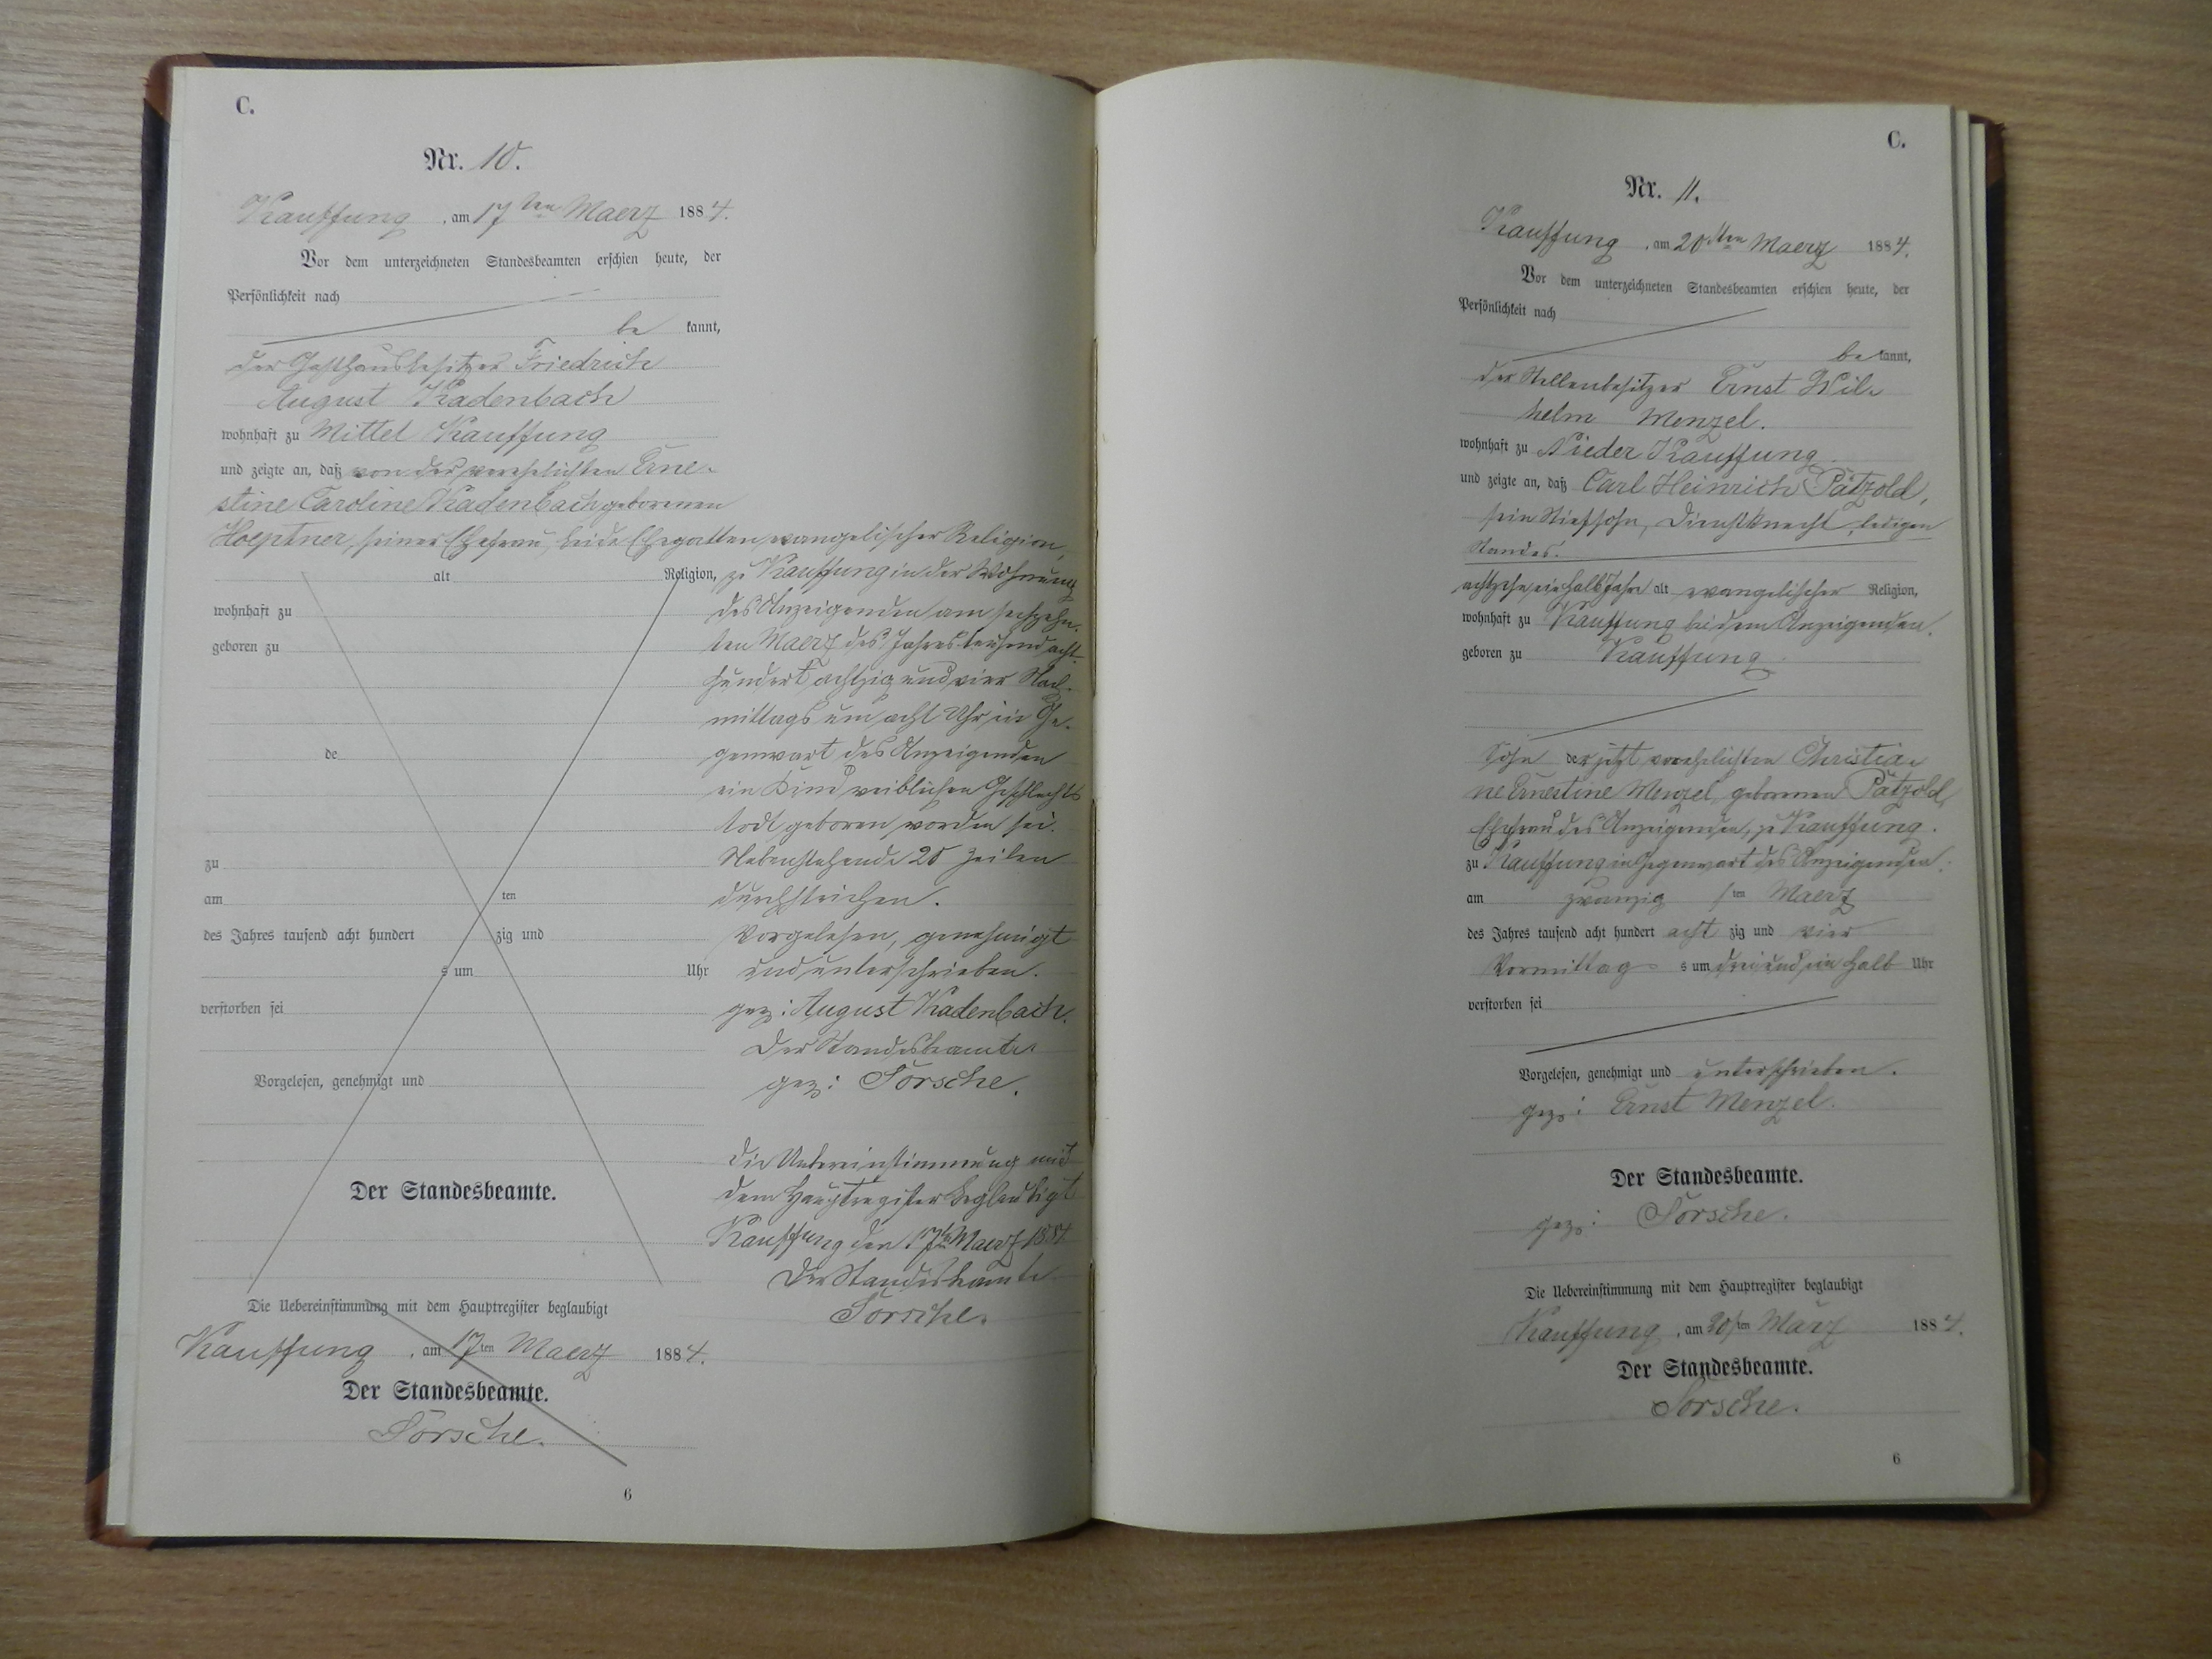 C.
Nr. 10.
Kauffung, am 17ten Maerz 1884.
Vor dem unterzeichneten Standesbeamten erschien heute, der
Persönlichkeit nach
be kannt,
der Gasthausbesitzer Friedrich
August Kadenbach
wohnhaft zu Mittel Kauffung
und zeigte an, daß von der verehelichten Erne-
stine Caroline Kadenbach geborenen
Hoeptner, seiner Ehefrau, beide Ehegatten evangelischer Religion,
alt Religion, zu Kauffung in der Wohnung
wohnhaft zu des Anzeigenden am sechzehn-
geboren zu ten Maerz des Jahres tausend acht-
hundert achtzig und vier Nach-
mittags um acht Uhr in Ge-
de genwart des Anzeigenden
ein Kind weiblichen Geschlechts
todt geboren worden sei.
zu Nebenstehende 20 Zeilen
am ten durchstrichen.
des Jahres tausend acht hundert zig und Vorgelesen, genehmigt
s um Uhr und unterschrieben.
verstorben sei gez: August Kadenbach.
Der Standesbeamte.
Vorgelesen, genehmigt und gez: Törsche.
Die Uebereinstimmung mit
Der Standesbeamte. dem Hauptregister beglaubigt
Kauffung den 17ten Maerz 1884
Der Standesbeamte
Die Uebereinstimmung mit dem Hauptregister beglaubigt Törsche.
Kauffung, am 17ten Maerz 1884.
Der Standesbeamte.
Törsche.
6
C.
Nr. 11.
Kauffung, am 20sten Maerz 1884.
Vor dem unterzeichneten Standesbeamten erschien heute, der
Persönlichkeit nach
be kannt,
der Stellenbesitzer Ernst Wil-
helm Menzel.
wohnhaft zu Nieder Kauffung
und zeigte an, daß Carl Heinrich Pätzold,
sein Stiefsohn, Dienstknecht, ledigen
Standes.
achtzehn einhalb Jahre alt evangelischer Religion,
wohnhaft zu Kauffung bei dem Anzeigenden.
geboren zu Kauffung.
Sohn der jetzt verehelichten Christia-
ne Ernestine Menzel, geborenen Pätzold,
Ehefrau des Anzeigenden, zu Kauffung.
zu Kauffung in Gegenwart des Anzeigenden.
am zwanzig sten Maerz
des Jahres tausend acht hundert acht zig und vier
Vormittag s um drei und ein halb Uhr
verstorben sei
Vorgelesen, genehmigt und unterschrieben.
gez: Ernst Menzel.
Der Standesbeamte.
gez: Törsche.
Die Uebereinstimmung mit dem Hauptregister beglaubigt
Kauffung, am 20sten März 1884.
Der Standesbeamte.
Törsche.
6